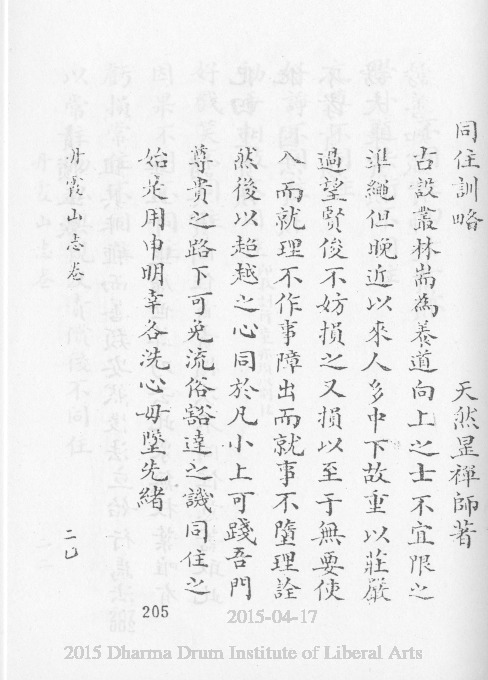 同住訓略 天然昰禪師著
古設叢林耑為養道向上之士不宜限之
準繩但晚近以來人多中下故重以莊嚴
過望賢俊不妨損之又損以至于無要使
入而就理不作事障出而就事不墮理詮
然後以超越之心同於凡小上可踐吾門
尊貴之路下可免流俗豁達之譏同住之
始先用申明幸各洗心毋墜先緒
丹霞山志卷 二〇
205
2015-04-17
2015 Dharma Drum Institute of Liberal Arts